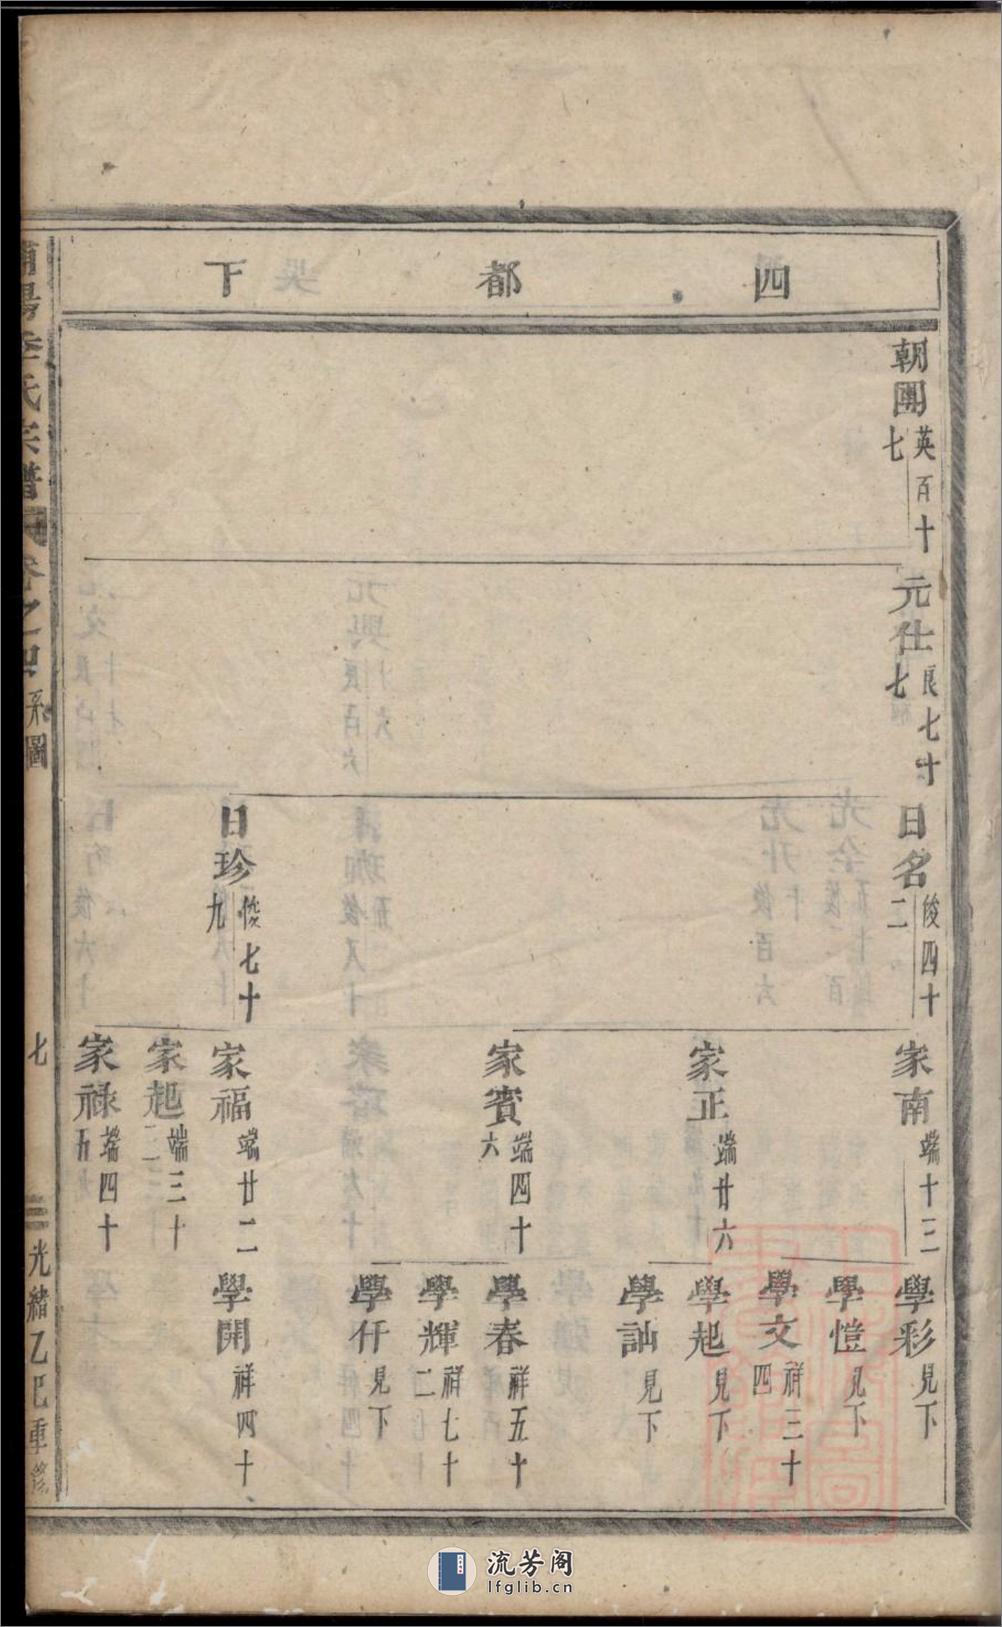 四都下
朝團 英百十七
元仕 良七十七
日名 俊四十二
日珍 俊七十九
家南 端十三
家正 端廿六
家賓 端四十六
家福 端廿二
家起 端三十
家祿 端四十五
學彩 見下
學愷 見下
學文 祥三十四
學起 見下
學訕 見下
學春 祥五十
學輝 祥七十二
學仟 見下
學開 祥四十
李氏宗譜 卷之四 系圖
七
光緒乙巳重修
流芳阁
lfglib.cn